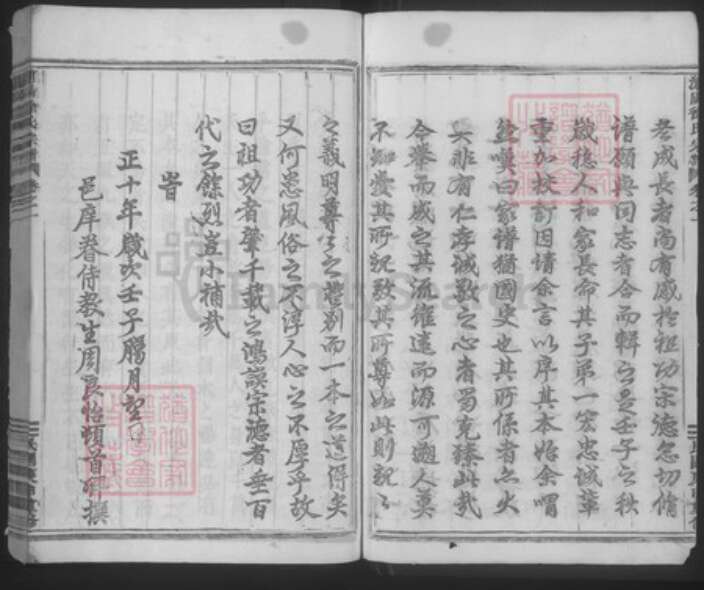 老成長者尚有感於祖功宗德急切脩
譜願與同志者合而輯之是壬子之秋
歲稔人和家長命其子弟一宏忠誠華
重加校訂因請余言以序其本始余喟
然嘆曰家譜猶國史也其所係者亦大
矣非有仁孝誠敬之心者曷克臻此哉
今舉而成之其流雖遠而源可遡人莫
不知愛其所親敬其所尊如此則親親
之義明尊尊之禮別而一本之道得矣
又何患風俗之不淳人心之不厚乎故
曰祖功者肇千載之鴻謨宗德者垂百
代之餘烈豈小補哉
旹
正十年歲次壬子臈月望
邑庠眷侍教生周良怡頓首拜撰
FamilySearch